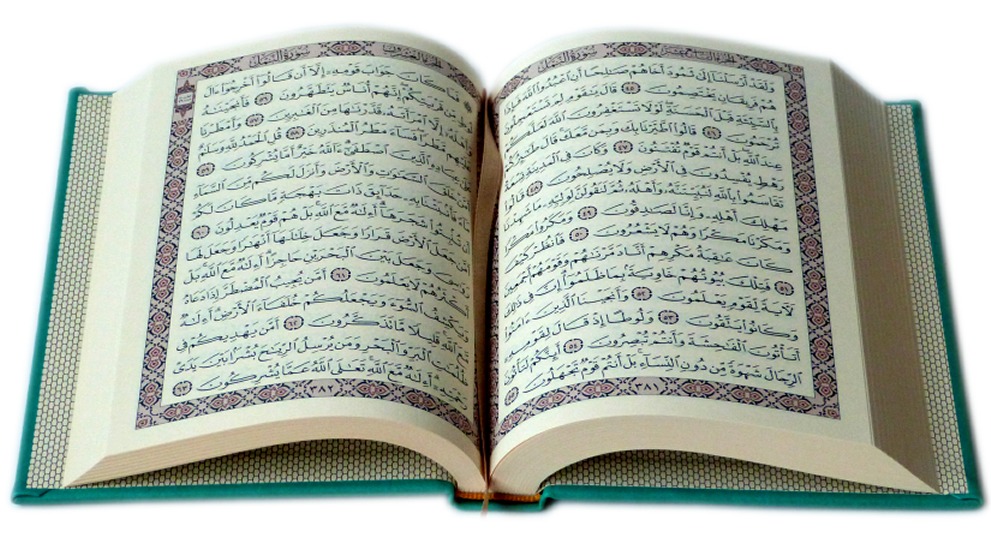 سورة النمل
وَلَقَدْ أَرْسَلْنَآ إِلَىٰ ثَمُودَ أَخَاهُمْ صَـٰلِحًا أَنِ ٱعْبُدُوا۟ ٱللَّهَ فَإِذَا
هُمْ فَرِيقَانِ يَخْتَصِمُونَ ٤٥ قَالَ يَـٰقَوْمِ لِمَ تَسْتَعْجِلُونَ
بِٱلسَّيِّئَةِ قَبْلَ ٱلْحَسَنَةِ لَوْلَا تَسْتَغْفِرُونَ ٱللَّهَ لَعَلَّكُمْ
تُرْحَمُونَ ٤٦ قَالُوا۟ ٱطَّيَّرْنَا بِكَ وَبِمَن مَّعَكَ قَالَ طَـٰٓئِرُكُمْ
عِندَ ٱللَّهِ بَلْ أَنتُمْ قَوْمٌ تُفْتَنُونَ ٤٧ وَكَانَ فِى ٱلْمَدِينَةِ تِسْعَةُ
رَهْطٍ يُفْسِدُونَ فِى ٱلْأَرْضِ وَلَا يُصْلِحُونَ ٤٨ قَالُوا۟
تَقَاسَمُوا۟ بِٱللَّهِ لَنُبَيِّتَنَّهُۥ وَأَهْلَهُۥ ثُمَّ لَنَقُولَنَّ لِوَلِيِّهِۦ مَا شَهِدْنَا
مَهْلِكَ أَهْلِهِۦ وَإِنَّا لَصَـٰدِقُونَ ٤٩ وَمَكَرُوا۟ مَكْرًا
وَمَكَرْنَا مَكْرًا وَهُمْ لَا يَشْعُرُونَ ٥٠ فَٱنظُرْ كَيْفَ
كَانَ عَـٰقِبَةُ مَكْرِهِمْ أَنَّا دَمَّرْنَـٰهُمْ وَقَوْمَهُمْ أَجْمَعِينَ
٥١ فَتِلْكَ بُيُوتُهُمْ خَاوِيَةًۢ بِمَا ظَلَمُوٓا۟ إِنَّ فِى ذَٰلِكَ
لَـَٔايَةً لِّقَوْمٍ يَعْلَمُونَ ٥٢ وَأَنجَيْنَا ٱلَّذِينَ ءَامَنُوا۟
وَكَانُوا۟ يَتَّقُونَ ٥٣ وَلُوطًا إِذْ قَالَ لِقَوْمِهِۦٓ
أَتَأْتُونَ ٱلْفَـٰحِشَةَ وَأَنتُمْ تُبْصِرُونَ ٥٤ أَئِنَّكُمْ لَتَأْتُونَ
ٱلرِّجَالَ شَهْوَةً مِّن دُونِ ٱلنِّسَآءِ بَلْ أَنتُمْ قَوْمٌ تَجْهَلُونَ ٥٥
٣٨١
سورة النمل
فَمَا كَانَ جَوَابَ قَوْمِهِۦٓ إِلَّآ أَن قَالُوٓا۟ أَخْرِجُوٓا۟ ءَالَ
لُوطٍ مِّن قَرْيَتِكُمْ إِنَّهُمْ أُنَاسٌ يَتَطَهَّرُونَ ٥٦ فَأَنجَيْنَـٰهُ
وَأَهْلَهُۥٓ إِلَّا ٱمْرَأَتَهُۥ قَدَّرْنَـٰهَا مِنَ ٱلْغَـٰبِرِينَ ٥٧ وَأَمْطَرْنَا
عَلَيْهِم مَّطَرًا فَسَآءَ مَطَرُ ٱلْمُنذَرِينَ ٥٨ قُلِ ٱلْحَمْدُ لِلَّهِ وَسَلَـٰمٌ
عَلَىٰ عِبَادِهِ ٱلَّذِينَ ٱصْطَفَىٰٓ ءَآللَّهُ خَيْرٌ أَمَّا يُشْرِكُونَ ٥٩
أَمَّنْ خَلَقَ ٱلسَّمَـٰوَٰتِ وَٱلْأَرْضَ وَأَنزَلَ لَكُم مِّنَ ٱلسَّمَآءِ
مَآءً فَأَنۢبَتْنَا بِهِۦ حَدَآئِقَ ذَاتَ بَهْجَةٍ مَّا كَانَ لَكُمْ
أَن تُنۢبِتُوا۟ شَجَرَهَآ أَءِلَـٰهٌ مَّعَ ٱللَّهِ بَلْ هُمْ قَوْمٌ يَعْدِلُونَ ٦٠
أَمَّن جَعَلَ ٱلْأَرْضَ قَرَارًا وَجَعَلَ خِلَـٰلَهَآ أَنْهَـٰرًا وَجَعَلَ لَهَا
رَوَٰسِىَ وَجَعَلَ بَيْنَ ٱلْبَحْرَيْنِ حَاجِزًا أَءِلَـٰهٌ مَّعَ ٱللَّهِ بَلْ
أَكْثَرُهُمْ لَا يَعْلَمُونَ ٦١ أَمَّن يُجِيبُ ٱلْمُضْطَرَّ إِذَا دَعَاهُ
وَيَكْشِفُ ٱلسُّوٓءَ وَيَجْعَلُكُمْ خُلَفَآءَ ٱلْأَرْضِ أَءِلَـٰهٌ
مَّعَ ٱللَّهِ قَلِيلًا مَّا تَذَكَّرُونَ ٦٢ أَمَّن يَهْدِيكُمْ فِى
ظُلُمَـٰتِ ٱلْبَرِّ وَٱلْبَحْرِ وَمَن يُرْسِلُ ٱلرِّيَـٰحَ بُشْرًۢا بَيْنَ يَدَىْ
رَحْمَتِهِۦٓ أَءِلَـٰهٌ مَّعَ ٱللَّهِ تَعَـٰلَى ٱللَّهُ عَمَّا يُشْرِكُونَ ٦٣
٣٨٢